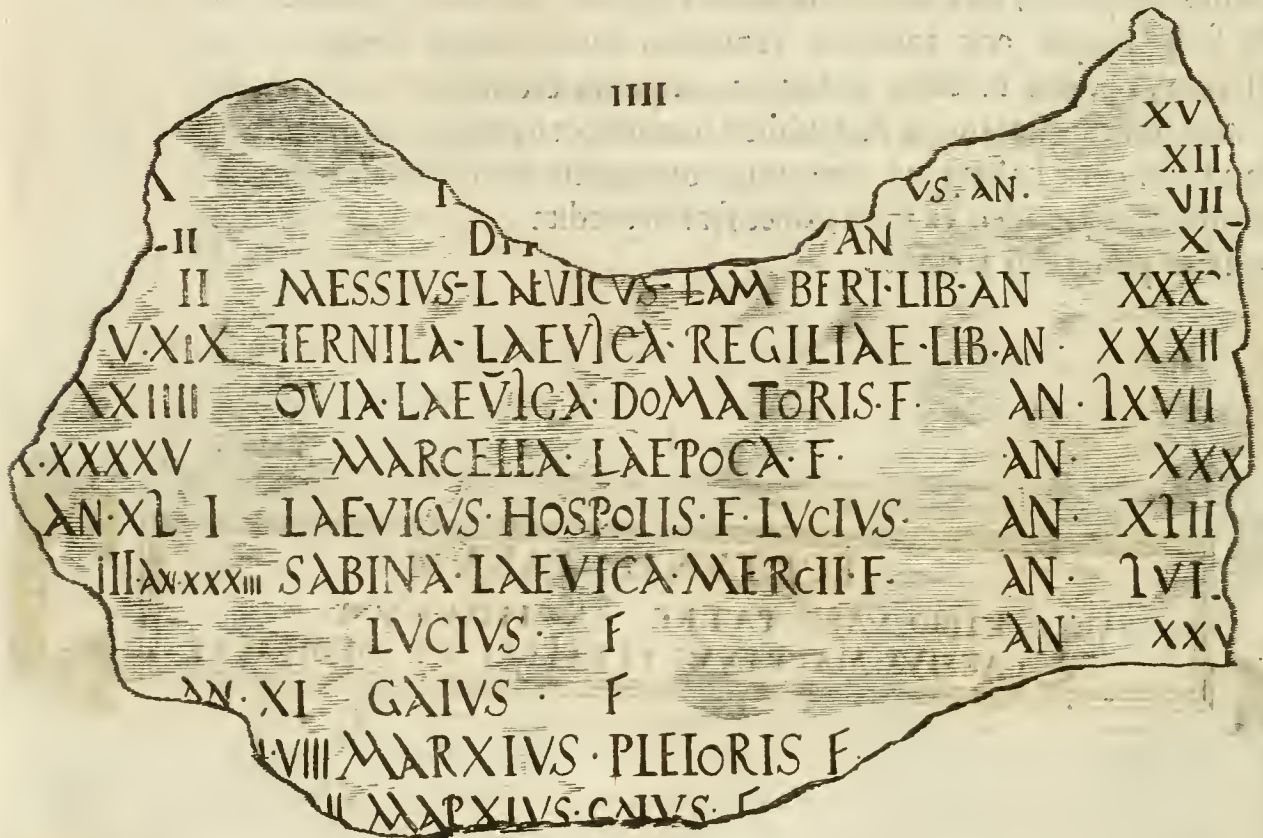 IIII
XV
XII
I VS·AN· VII
-II AN XV
II MESSIVS-LAEVICVS-LAMBERI·LIB·AN XXX
V·XIX TERNILA·LAEVICA·REGILIAE·LIB·AN· XXXII
XXIIII OVIA·LAEVICA·DOMATORIS·F· AN·LXVII
·XXXXV MARCELLA·LAEPOCA·F· ·AN· XXX
AN·XL I LAEVICVS·HOSPOLIS·F·LVCIVS· AN· XLII
III·AN·XXXIII SABINA·LAEVICA·MERCII·F· AN· LVI
LVCIVS· F AN XXV
AN·XI GAIVS· F
·VIII MARXIVS·PLEIORIS F·
II MARXIVS·GAIVS·F